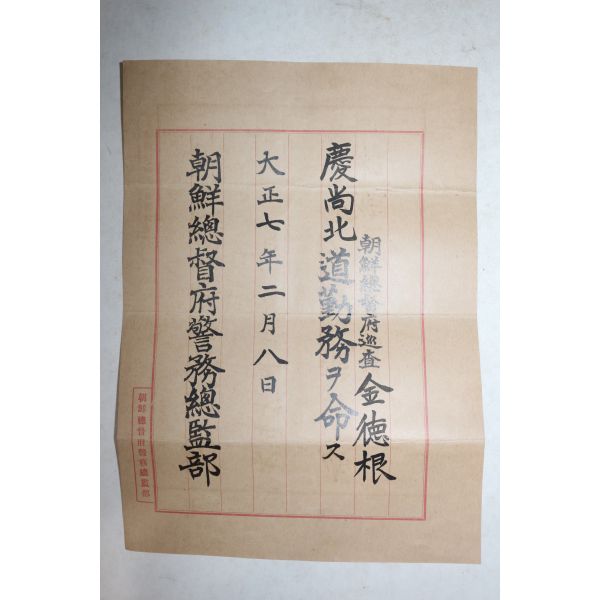 朝鮮總督府巡査 金徳根
慶尚北道勤務ヲ命ス
大正七年二月八日
朝鮮總督府警務總監部
朝鮮總督府警務總監部